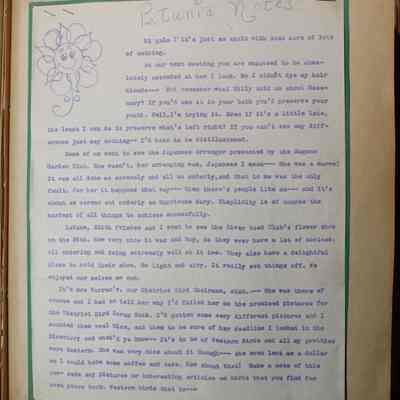 Petunia Notes
Hi gals! It's just me again with some more of lots
of nothing.
At our next meeting you are supposed to be abso-
lutely astounded at how I look. No I didn't dye my hair
blonde--- But remember what Billy told us about Rose-
mary? If you'd use it in your bath you'd preserve your
youth. Well, I'm trying it. Even if it's a little late,
the least I can do is preserve what's left right? If you can't see any diff-
erence just say nothing-- I'd hate to be disillusioned.
Some of us went to see the Japanese Arranger presented by the Eugene
Garden Club. She wasn't, her arranging was, Japanese I mean--- She was a marvel
It was all done so serenely and all so orderly, and that to me was the only
fault. For her it happens that way--- Then there's people like me--- and it's
about as serene and orderly as Hurricane Mary. Simplicity is of course the
hardest of all things to achieve successfully.
LaVane, Edith Frictes and I went to see the River Road Club's flower show
on the 24th. Now very show it was and hey, do they ever have a lot of hostess;
all entering and doing extremely well at it too. They also have a delightful
place to hold their show. So light and airy. It really set things off. We
enjoyed our selves no end.
It's Mrs our District Bird Chairman, also.--- She was there of
course and I had to tell her why I'd failed her on the promised pictures for
the District Bird Scrap Book. I'd gotten some very different pictures and I
mounted them real nice, and then to be sure of her deadline I looked in the
Directory and what'd ya know-- It's to be of Western Birds and all my pretties
were Eastern. She was very nice about it though--- she even lent me a dollar
so I could have some coffee and cake. How about that! Make a note of this
save any pictures or interesting articles on birds that you find for
next years book. Western birds that is---